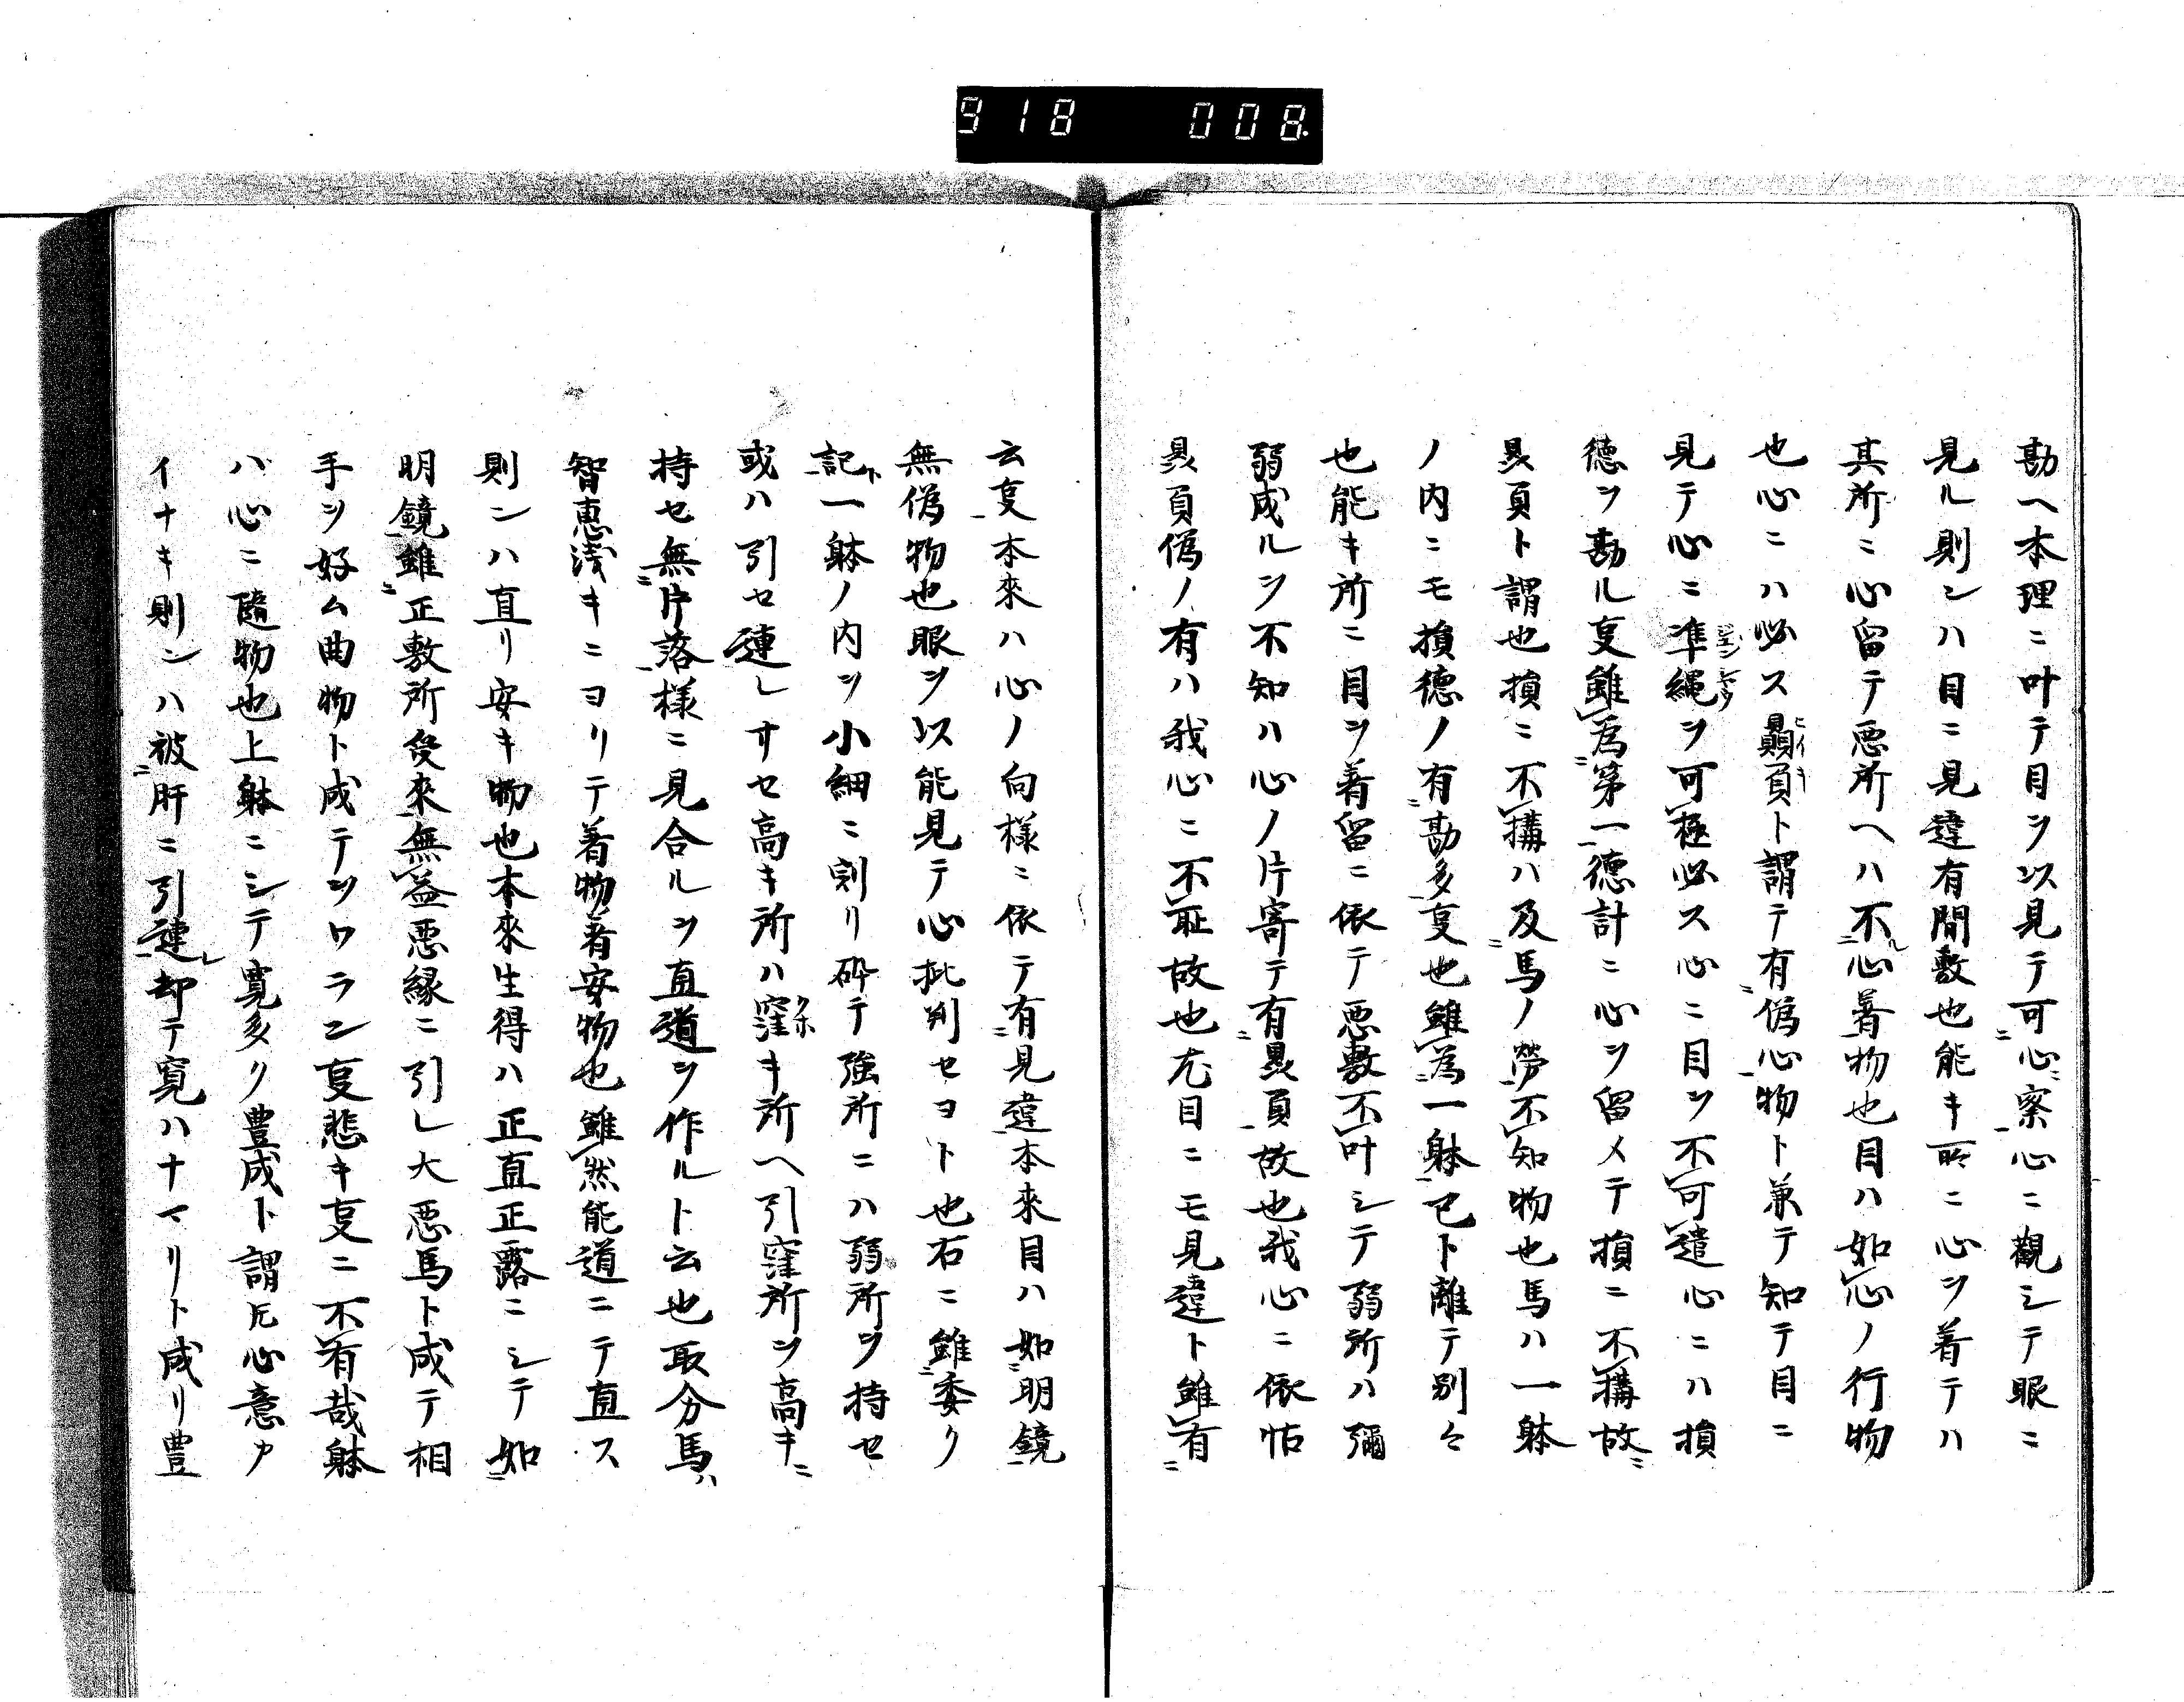 918 008
勘ヘ本理ニ叶テ目ヲ以見テ可心察心ニ觀シテ眼ニ
見ル則シハ目ニ見違有間敷也能キ所ニ心ヲ着テハ
其所ニ心留テ悪所ヘハ不心着物也目ハ如心ノ行物
也心ニハ必ス贔負ト謂テ有偽心物ト兼テ知テ目ニ
見テ心ニ準繩ヲ可極必ス心ニ目ヲ不可遣心ニハ損
徳ヲ勘ル叓雖為第一徳計ニ心ヲ留メテ損ニ不構故
贔負ト謂也損ニ不構ハ及馬ノ労不知物也馬ハ一躰
ノ内ニモ損徳ノ有勘多叓也雖為一躰已ト離テ別々
也能キ所ニ目ヲ着留ニ依テ悪敷不叶シテ弱所ハ彌
弱成ルヲ不知ハ心ノ片寄テ有贔負故也我心ニ依怙
贔負偽ノ有ハ我心ニ不耻故也尤目ニモ見違ト雖有
云叓本來ハ心ノ向様ニ依テ有見違本来目ハ如明鏡
無偽物也眼ヲ以能見テ心批判セヨト也右ニ雖委ク
記ト一躰ノ内ヲ小細ニ割リ砕テ強所ニハ弱所ヲ持セ
或ハ引セ連レサセ高キ所ハ窪キ所ヘ引窪所ヲ高キニ
持セ無片落様ニ見合ルヲ直道ヲ作ルト云也取分馬ハ
智恵浅キニヨリテ着物着安物也雖然能道ニテ直ス
則ンハ直リ安キ物也本來生得ハ正直正露ニシテ如
明鏡雖正敷所從來無益悪縁ニ引レ大悪馬ト成テ相
手ヲ好ム曲物ト成テツワラン叓悲キ叓ニ不有哉躰
ハ心ニ隨物也上躰ニシテ寛多ク豊成ト謂トモ心意カ
イナキ則ンハ被肝ニ引連レ却テ寛ハナマリト成リ豊